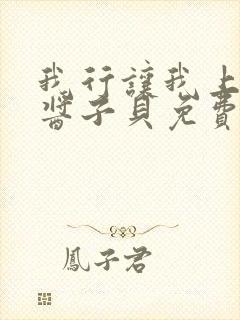 我行讓我上
醬子貝免費
鳳子君